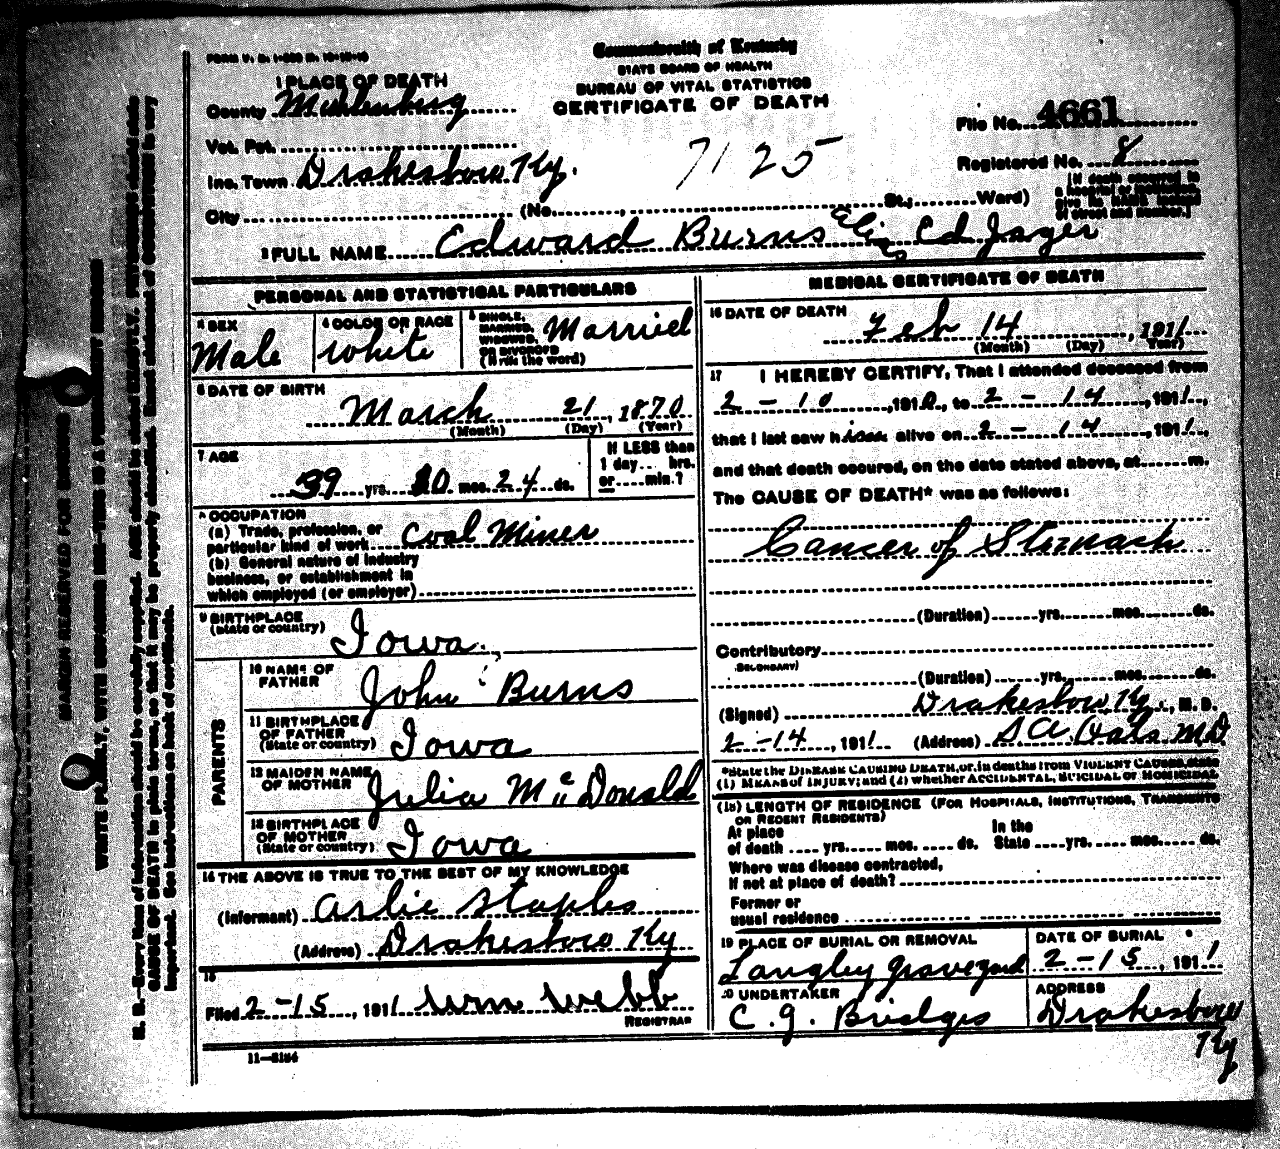 FORM V. S. 1-
Commonwealth of Kentucky
STATE BOARD OF HEALTH
BUREAU OF VITAL STATISTICS
CERTIFICATE OF DEATH
1 PLACE OF DEATH
County Muhlenburg
Vot. Pct.
Inc. Town Drakesboro Ky.
City (No. , St.; Ward)
7125
File No. 4661
Registered No. 8
[If death occurred in
a hospital or institution,
give its NAME instead
of street and number.]
2 FULL NAME Edward Burns Ed Jager
PERSONAL AND STATISTICAL PARTICULARS
3 SEX
Male
4 COLOR OR RACE
White
5 SINGLE,
MARRIED,
WIDOWED,
OR DIVORCED
(Write the word)
Married
6 DATE OF BIRTH
March 21, 1870
(Month) (Day) (Year)
7 AGE
39 yrs. 10 mos. 24 ds.
If LESS than
1 day.. hrs.
or.....min.?
8 OCCUPATION
(a) Trade, profession, or
particular kind of work Coal Miner
(b) General nature of industry
business, or establishment in
which employed (or employer)
9 BIRTHPLACE
(State or country)
Iowa
PARENTS
10 NAME OF
FATHER
John Burns
11 BIRTHPLACE
OF FATHER
(State or country)
Iowa
12 MAIDEN NAME
OF MOTHER
Julia McDonald
13 BIRTHPLACE
OF MOTHER
(State or country)
Iowa
14 THE ABOVE IS TRUE TO THE BEST OF MY KNOWLEDGE
(Informant) Arlie Staples
(Address) Drakesboro Ky
15
Filed 2-15, 1911 Wm Webb
REGISTRAR
11-3184
MEDICAL CERTIFICATE OF DEATH
16 DATE OF DEATH
Feb 14, 1911
(Month) (Day) (Year)
17 I HEREBY CERTIFY, That I attended deceased from
2 - 10, 1910, to 2 - 14, 1911,
that I last saw him alive on 2 - 14, 1911,
and that death occured, on the date stated above, at m.
The CAUSE OF DEATH* was as follows:
Cancer of Stomach
(Duration) yrs. mos. ds.
Contributory
SECONDARY)
(Duration) yrs. mos. ds.
(Signed) Drakesboro Ky., M. D.
2-14, 1911 (Address) MD
*State the DISEASE CAUSING DEATH, or, in deaths from VIOLENT CAUSES, state
(1) MEANS of INJURY; and (2) whether ACCIDENTAL, SUICIDAL or HOMICIDAL
(18) LENGTH OF RESIDENCE (FOR HOSPITALS, INSTITUTIONS, TRANSIENTS
OR RECENT RESIDENTS)
At place
of death yrs. mos. ds.
In the
State yrs. mos. ds.
Where was disease contracted,
If not at place of death?
Former or
usual residence
19 PLACE OF BURIAL OR REMOVAL
Langley graveyard
DATE OF BURIAL
2-15, 1911
20 UNDERTAKER
C. J. Bridges
ADDRESS
Drakesboro
Ky
MARGIN RESERVED FOR BINDING
WRITE PLAINLY, WITH UNFADING INK—THIS IS A PERMANENT RECORD
N. B.—Every item of information should be carefully supplied. AGE should be stated EXACTLY. PHYSICIANS should state
CAUSE OF DEATH in plain terms, so that it may be properly classified. Exact statement of OCCUPATION is very
important. See instructions on back of certificate.